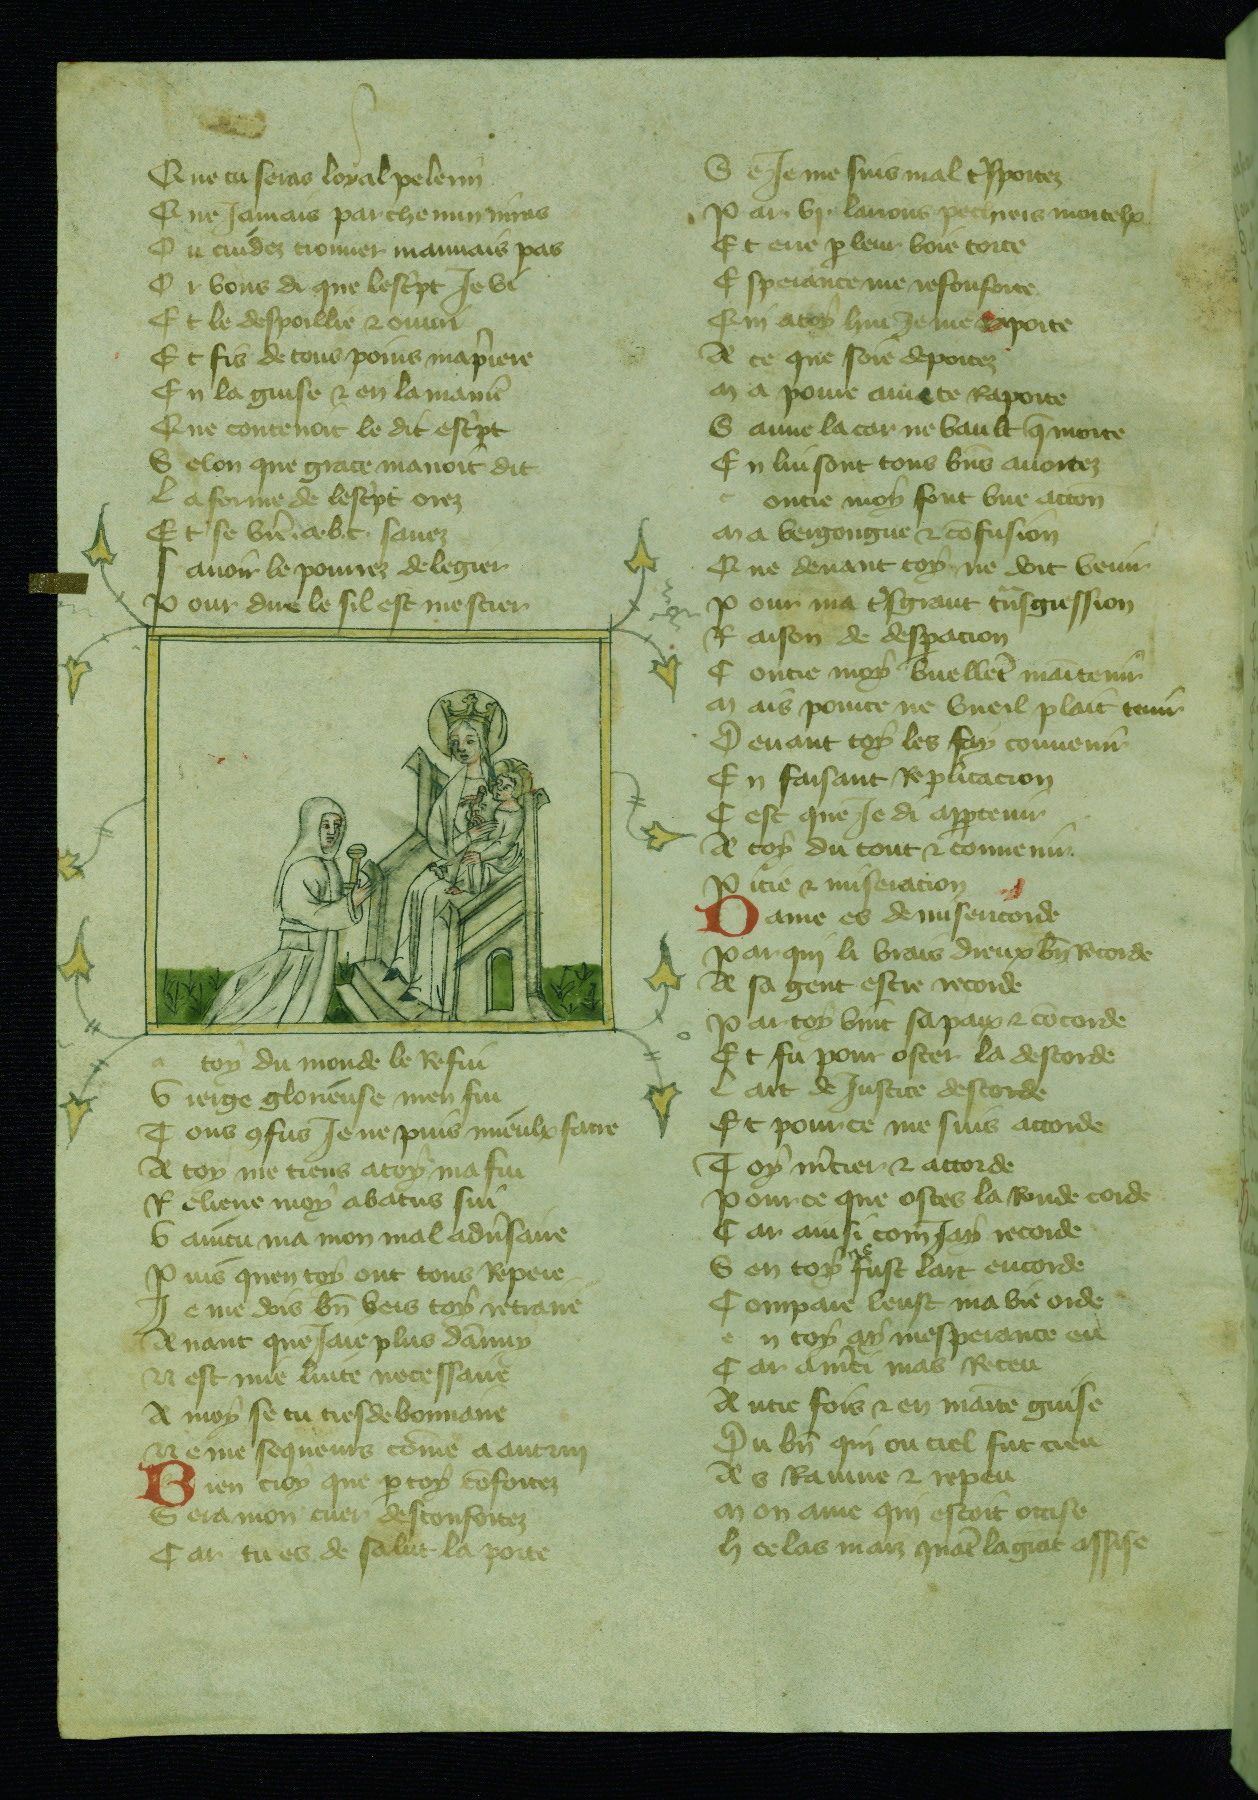 Que tu seras loyal pelerin
Que Jamais par chemin niras
O u cuidez trouuer mauuais pas
O r vous di que lescpt Je vi
E t le despoillie ⁊ ouuri
E t fis de tous poins ma pere
E n la guise ⁊ en la manie
Que contenoit le dit escpt
S elon que grace mauoit dit
L a forme de lescpt orez
E t se vre .a.b.c. sauez
S auoir le pourrez de legier
P our dire le sil est mestier
a toy du monde le Refui
V ierge glorieuse men fui
T ous 9fus Je ne puis mieulx faire
A toy me tiens a toy ma fui
R elieue moy abatus sui
V aincu ma mon mal aduersaire
P uis quen toy ont tous Repere
J e me dois bn vers toy retraire
A uant que Jaie plus dānuy
N est mie luite necessaire
A moy se tu tres debonnaire
N e me sequeurs cōme a autrui
B ien croy que p toy cōfortez
S era mon cuer desconfortez
C ar tu es de salut la porte
S e Je me suis mal tsportez
P ar vij. larrons pechiers mortelx
E t erre p leur voie torte
E sperance me resconforte
Qui a toy hui Je me raporte
A ce que soie deportez
M a poure ame te Raporte
S auue la car ne vault q̄ morte
E n lui sont tous bns auortez
c ontre moy font vne accon
M a vergongne ⁊ cōfusion
Que deuant toy ne doit venir
P our ma tsgrant tnsgression
R aison de despacion
C ontre moy vuellet maītenir
M ais pource ne vueil plait tenir
D euant toy les fay conuenir
E n faisant Replicacion
C est que Je di apptenir
A toy du tout ⁊ conuenir
P itie ⁊ miseracion
D ame es de misericorde
P ar qui li vrais dieux bn Recorde
A sa gent estre recorde
P ar toy vint sa paix ⁊ cōcorde
E t fu pour oster la descorde
L art de Justice descorde
E t pource me suis accorde
T oy mcier ⁊ accorde
P ource que ostes la Ronde corde
C ar ainsi com Jay recorde
S en toy ne fust lart encorde
C ompare leust ma vie orde
e n toy ay mesperance eu
C ar a mci mas Receu
A utre fois ⁊ en mainte guise
D u bn qui ou ciel fut creu
A s Rauiue ⁊ repeu
M on ame qui estoit occise
H e las maiz quāt la grāt assise